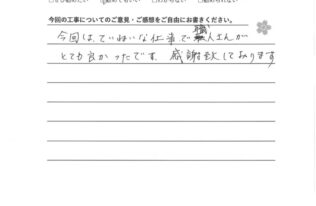 今回の工事についてのご意見・ご感想をご自由にお書きください。
今回は、ていねいな仕事で職人さんが
とても良かったです。感謝致しております